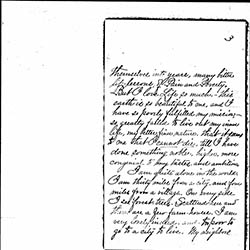 3
themselves into years, many bitter
life lessons of Pain and Poverty.
But I love Life so much. This
earth is so beautiful to me, and I
have so poorly fulfilled my mission—
so greatly failed to live out my inner
life, my better, finer nature, that it seems
to me that I cannot die, till I have
done something nobler, higher, more
congenial to my tastes and ambition.
I am quite alone in the world.
I am thirty miles from a city, and four
miles from a village. On every side
I see forest trees. Scattered here and
there are a few farm houses. I am
very and
go to a city to live. My neighbors